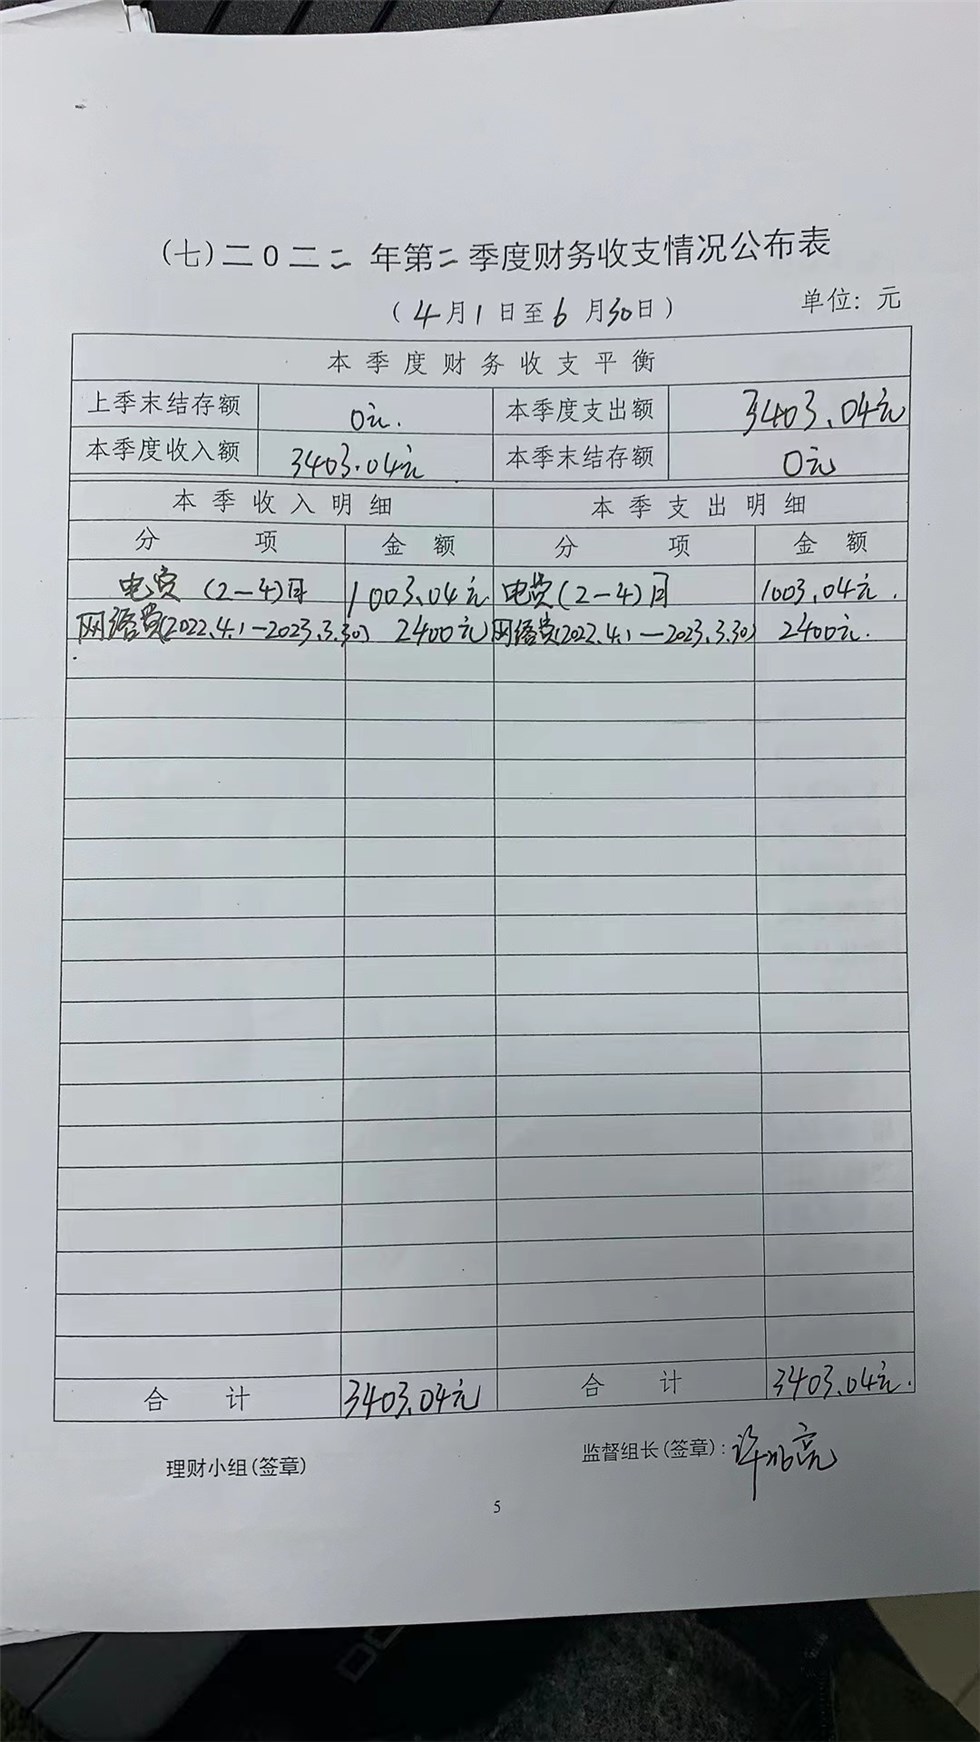 (七)二0二二年第二季度财务收支情况公布表
(4月1日至6月30日) 单位: 元
本季度财务收支平衡
上季末结存额 0元. 本季度支出额 3403.04元
本季度收入额 3403.04元 本季末结存额 0元
本季收入明细 本季支出明细
分项 金额 分项 金额
电费 (2-4)月 1003.04元 电费(2-4)月 1003.04元.
网络费(2022.4.1-2023.3.30) 2400元 网络费(2022.4.1-2023.3.30) 2400元.
合计 3403.04元 合计 3403.04元.
理财小组(签章) 监督组长(签章):
5